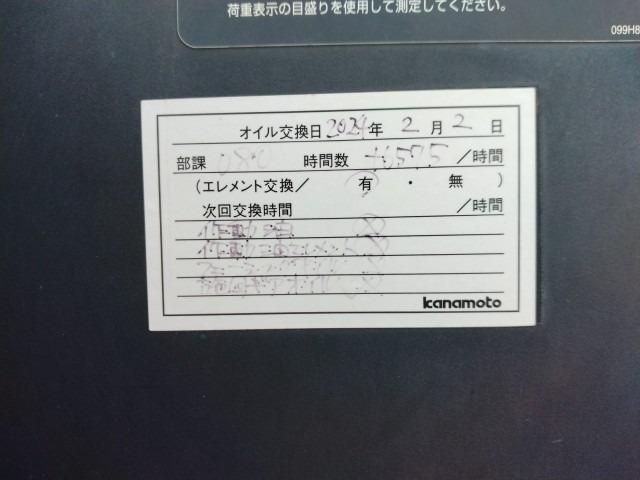 荷重表示の目盛りを使用して測定してください。
099H8
オイル交換日 2024年 2月 2日
部課 080 時間数 6575 /時間
(エレメント交換/ 有 ・ 無 )
次回交換時間 /時間
作動油
作動油エレメント
kanamoto